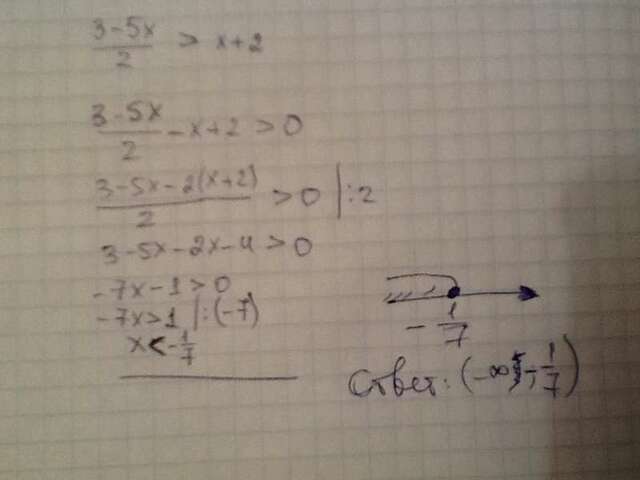 3-5x/2 > x+2
3-5x/2 -x+2 > 0
3-5x-2(x+2)/2 > 0 |:2
3-5x-2x-4>0
-7x-1>0
-7x>1 |:(-7)
x<-1/7
-1/7
Ответ: (-∞; -1/7)